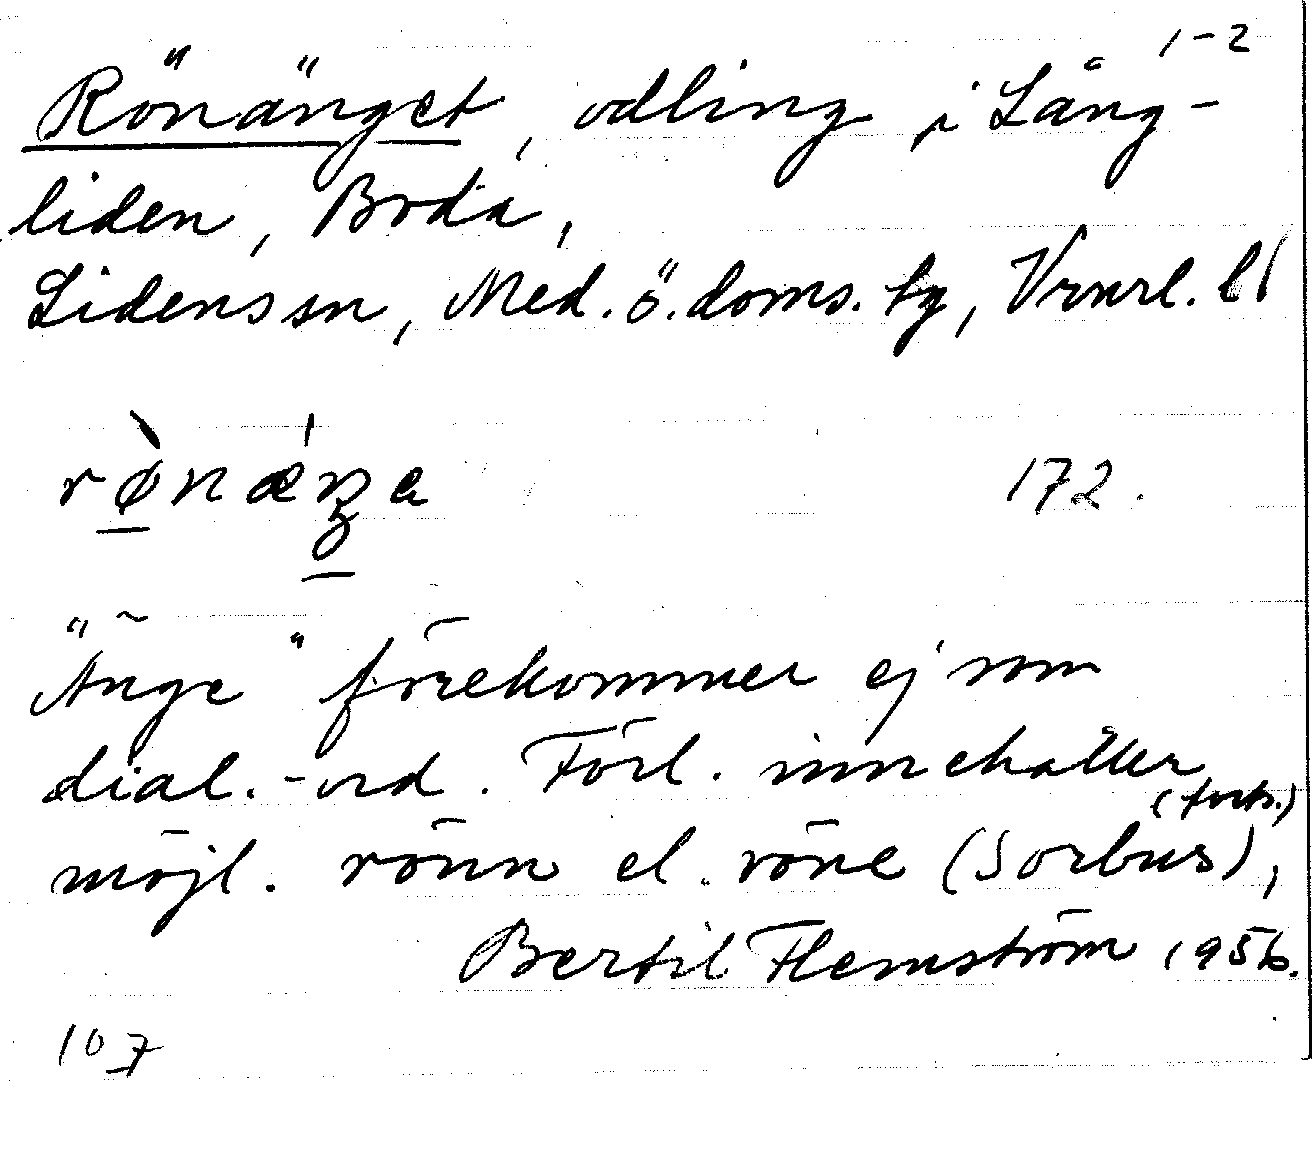 1-2
Rönänget, odling i Lång-
liden, Boda,
Lidens sn, Med. ö. doms. tg, Vrnrl. ll
172.
"Änge" förekommer ej som
dial.-ord. Förl. innehåller
möjl. rönn el. röne (Sorbus), (forts.)
Bertil Flemström 1956.
107